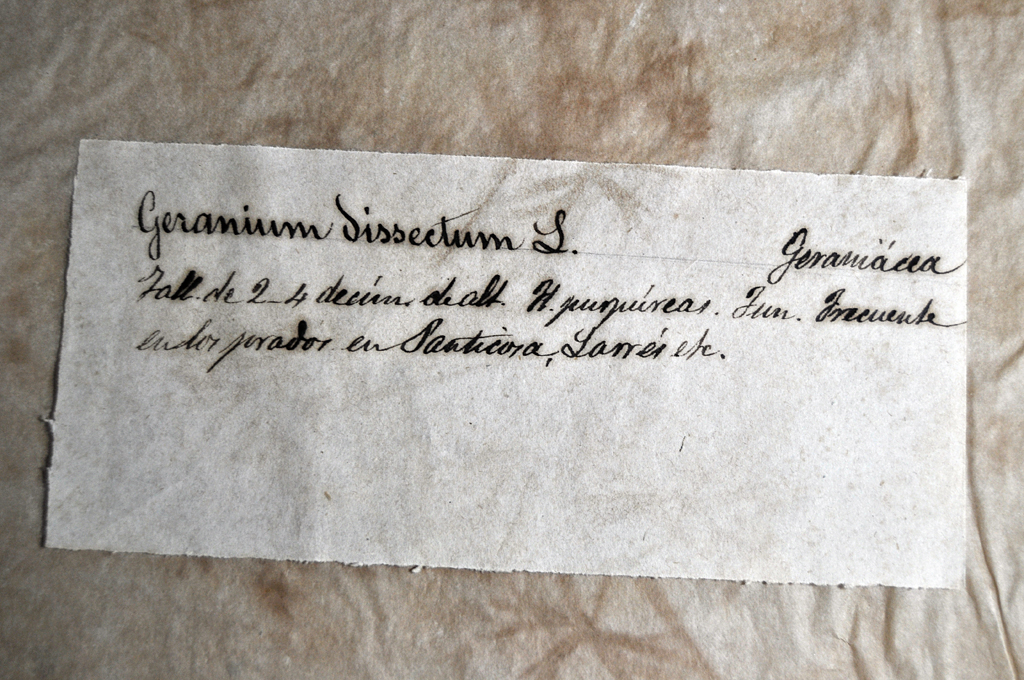 Geranium dissectum L. Geraniácea
Tall. de 2-4 decím. de alt. H. purpúreas. Jun. Frecuente
en los prados en Panticosa, Larrés etc.